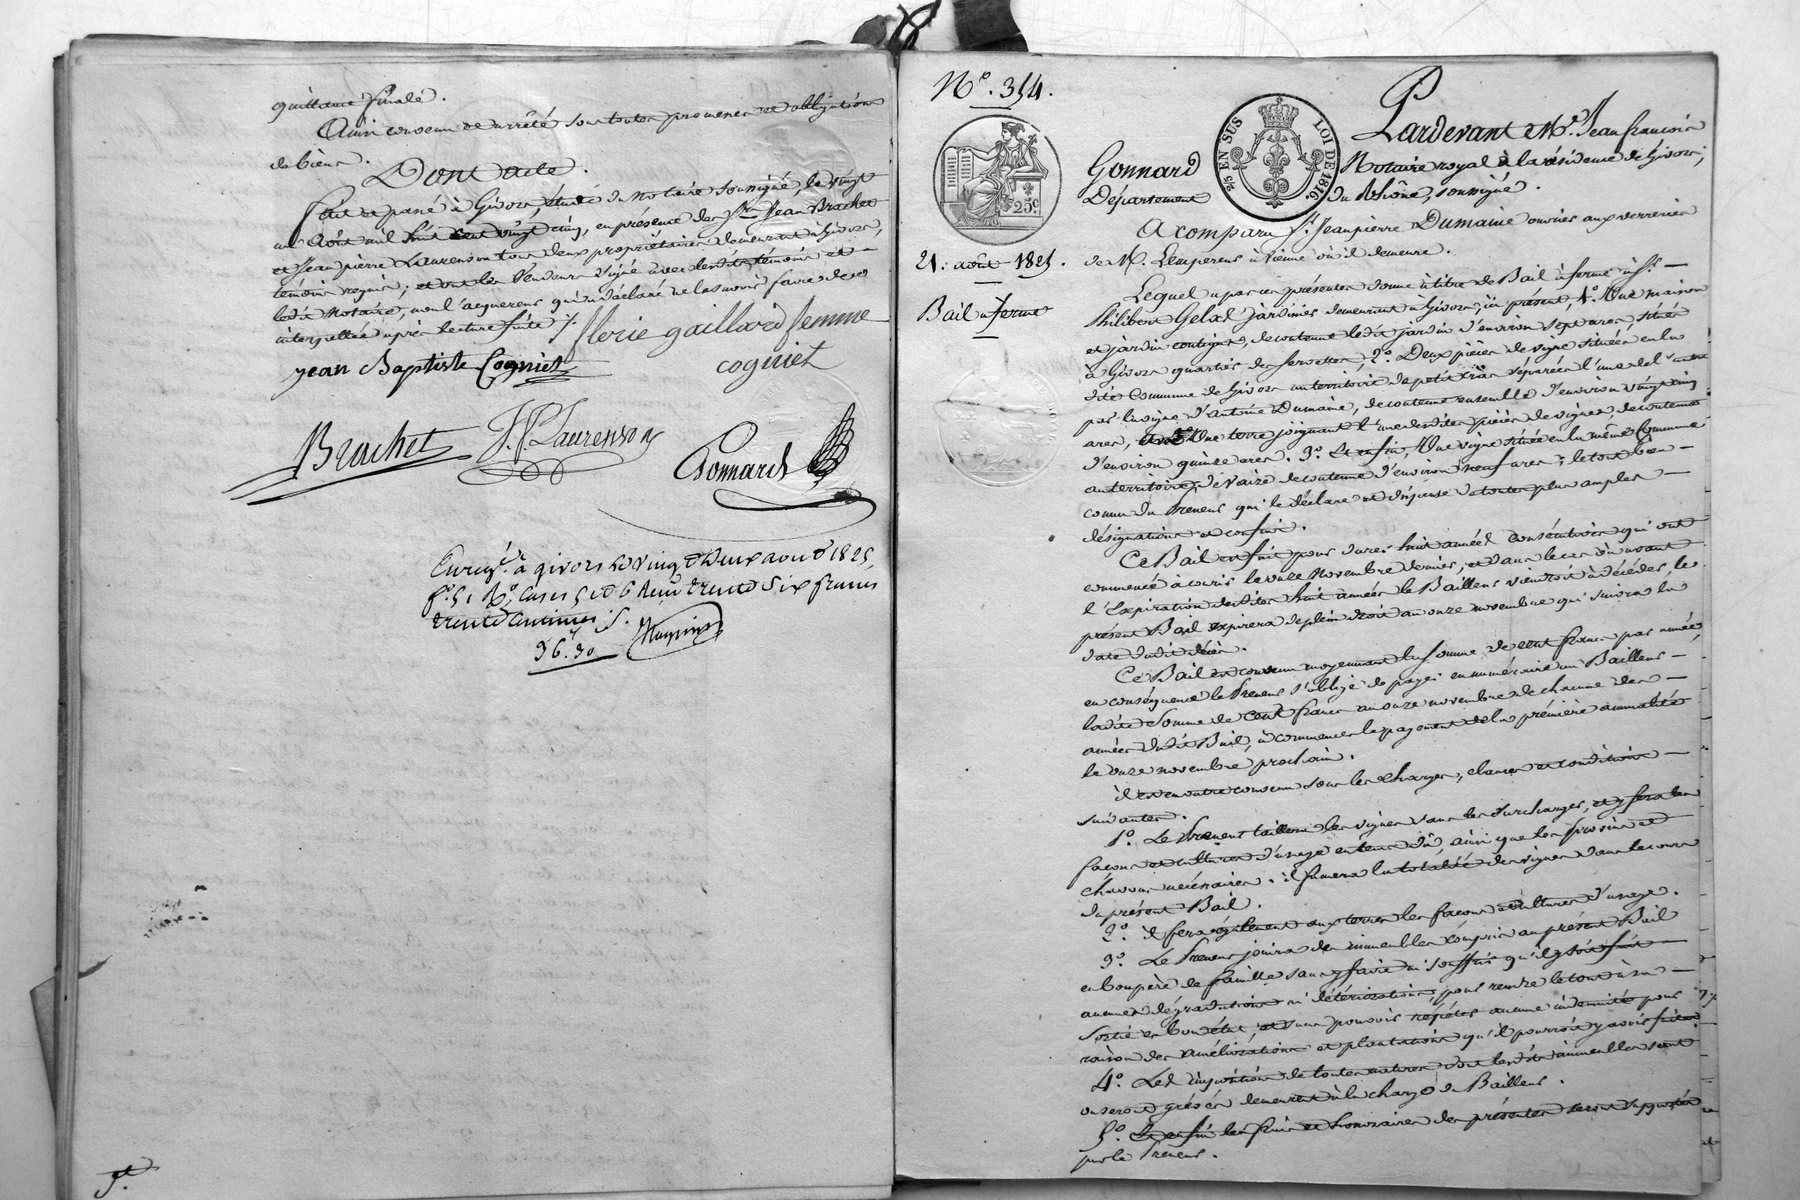 quittance finale.
Ainsi convenu et arrêté sous toutes promesses et obligations
de biens.
Dont acte.
Fait et passé à Givors, étude du Notaire soussigné, le vingt
un Août mil huit cent vingt cinq, en présence des Srs Jean Brachet
et Jean pierre Laurenson tous deux propriétaires demeurant à Givors,
témoins requis; et ont les Vendeurs signé avec lesdits témoins et
ledit Notaire, non l'acquereur qui a déclaré ne le savoir faire de ce
interpellé après lecture faite ./.
florie gaillard femme
cogniet
jean Baptiste Cogniet
Brachet
J. P. Laurenson
Gonnard
Enregé. à givors le vingt deux août 1825,
fo. 51 Ro. cases 5 et 6 Reçu trente Six francs
trente centimes ./.
36.30
No. 354.
25c.
21. août 1825.
Bail à ferme
25 EN SUS
LOI DE 1816
Pardevant Me. Jean françois
Gonnard Notaire royal à la résidence de Givors,
Département du Rhône, soussigné.
A comparu Sr. Jean pierre Dumaine ouvrier aux verreries
de Mr. Lempereur à Vienne où il demeure.
Lequel a par ces présentes donné à titre de Bail à ferme à Sr.
Philibert Gelas Jardinier demeurant à Givors, ici présent, 1o. Une maison
et jardin contigus, de contenue ledit jardin d'environ sept ares, située
à Givors quartier des ; 2o. Deux pièces de vigne situées en la
dite Commune de Givors au territoire de petit séparées l'une de l'autre
par la vigne d'antoine Dumaine, de contenue ensemble d'environ vingt cinq
ares, Une terre joignant l'une desdites pièces de vignes, de contenue
d'environ quinze ares. 3o. Et enfin, Une vigne située en la même Commune
au territoire de Vaize de contenue d'environ neuf ares; le tout bien
connu du Preneur qui le déclare et dispense de toutes plus amples
désignations et confins.
Ce Bail est fait pour durer huit années consécutives qui ont
commencé à courir le onze Novembre dernier, et dans le cas où avant
l'Expiration desdites huit années le Bailleur viendroit à décéder, le
présent Bail expirera de plein droit au onze novembre qui suivra la
date dudit décès.
Ce Bail est convenu moyennant la somme de cent francs par année,
en conséquence le Preneur s'oblige de payer en numéraire au Bailleur
ladite somme de cent francs au onze novembre de chacune des
années dudit Bail, à commencer le payement de la première annualité
le onze novembre prochain.
Il est en outre convenu sous les charges, clauses et conditions
suivantes.
1o. Le Preneur taillera les vignes sans les surcharger, et y fera les
façons et cultures d'usage en tems dû, ainsi que les provins et
nécessaires. il fumera la totalité des vignes dans le cours
du présent Bail.
2o. il fera également aux terres les façons et cultures d'usage.
3o. Le Preneur jouira des immeubles compris au présent Bail
en bon père de famille sans y faire ni souffrir qu'il y soit fait
aucunes dégradations ni détériorations, pour rendre le tout à sa
sortie en bon état, et sans pouvoir répéter aucune indemnité pour
raison des améliorations et plantations qu'il pourroit y avoir faites.
4o. Les impositions de toutes natures dont lesdits immeubles sont
ou seront grévés demeurent à la charge du Bailleur.
5o. Et enfin les frais et honoraires des présentes seront supportés
par le Preneur.